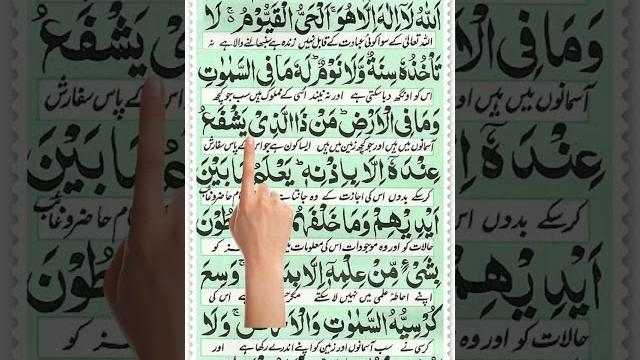 اَللّٰهُ لَآ اِلٰهَ اِلَّا هُوَ ۚ اَلْحَیُّ الْقَیُّوْمُ ۚ لَا
اللہ تعالیٰ کے سوا کوئی عبادت کے قابل نہیں زندہ ہے سنبھالنے والا ہے نہ
تَاْخُذُهٗ سِنَةٌ وَّلَا نَوْمٌ ؕ لَهٗ مَا فِی السَّمٰوٰتِ
اس کو اونگھ دبا سکتی ہے اور نہ نیند اسی کے مملوک ہیں سب جو کچھ
وَمَا فِی الْاَرْضِ ؕ مَنْ ذَا الَّذِیْ یَشْفَعُ
آسمانوں میں ہیں اور جو کچھ زمین میں ہیں ایسا کون ہے جو اس کے پاس سفارش
عِنْدَهٗۤ اِلَّا بِاِذْنِهٖ ؕ یَعْلَمُ مَا بَیْنَ
کرسکے بدوں اس کی اجازت کے وہ جانتا ہے
اَیْدِیْهِمْ وَمَا خَلْفَهُمْ
حالات کو اور وہ موجودات اس کی معلومات میں
بِشَیْءٍ مِّنْ عِلْمِهٖۤ اِلَّا وَسِعَ
اپنے احاطۂ علمی میں نہیں لا سکتے مگر اس کی
كُرْسِیُّهُ السَّمٰوٰتِ وَالْاَرْضَ ۚ وَلَا
کرسی نے سب آسمانوں اور زمین کو اپنے اندر لے رکھا ہے اور